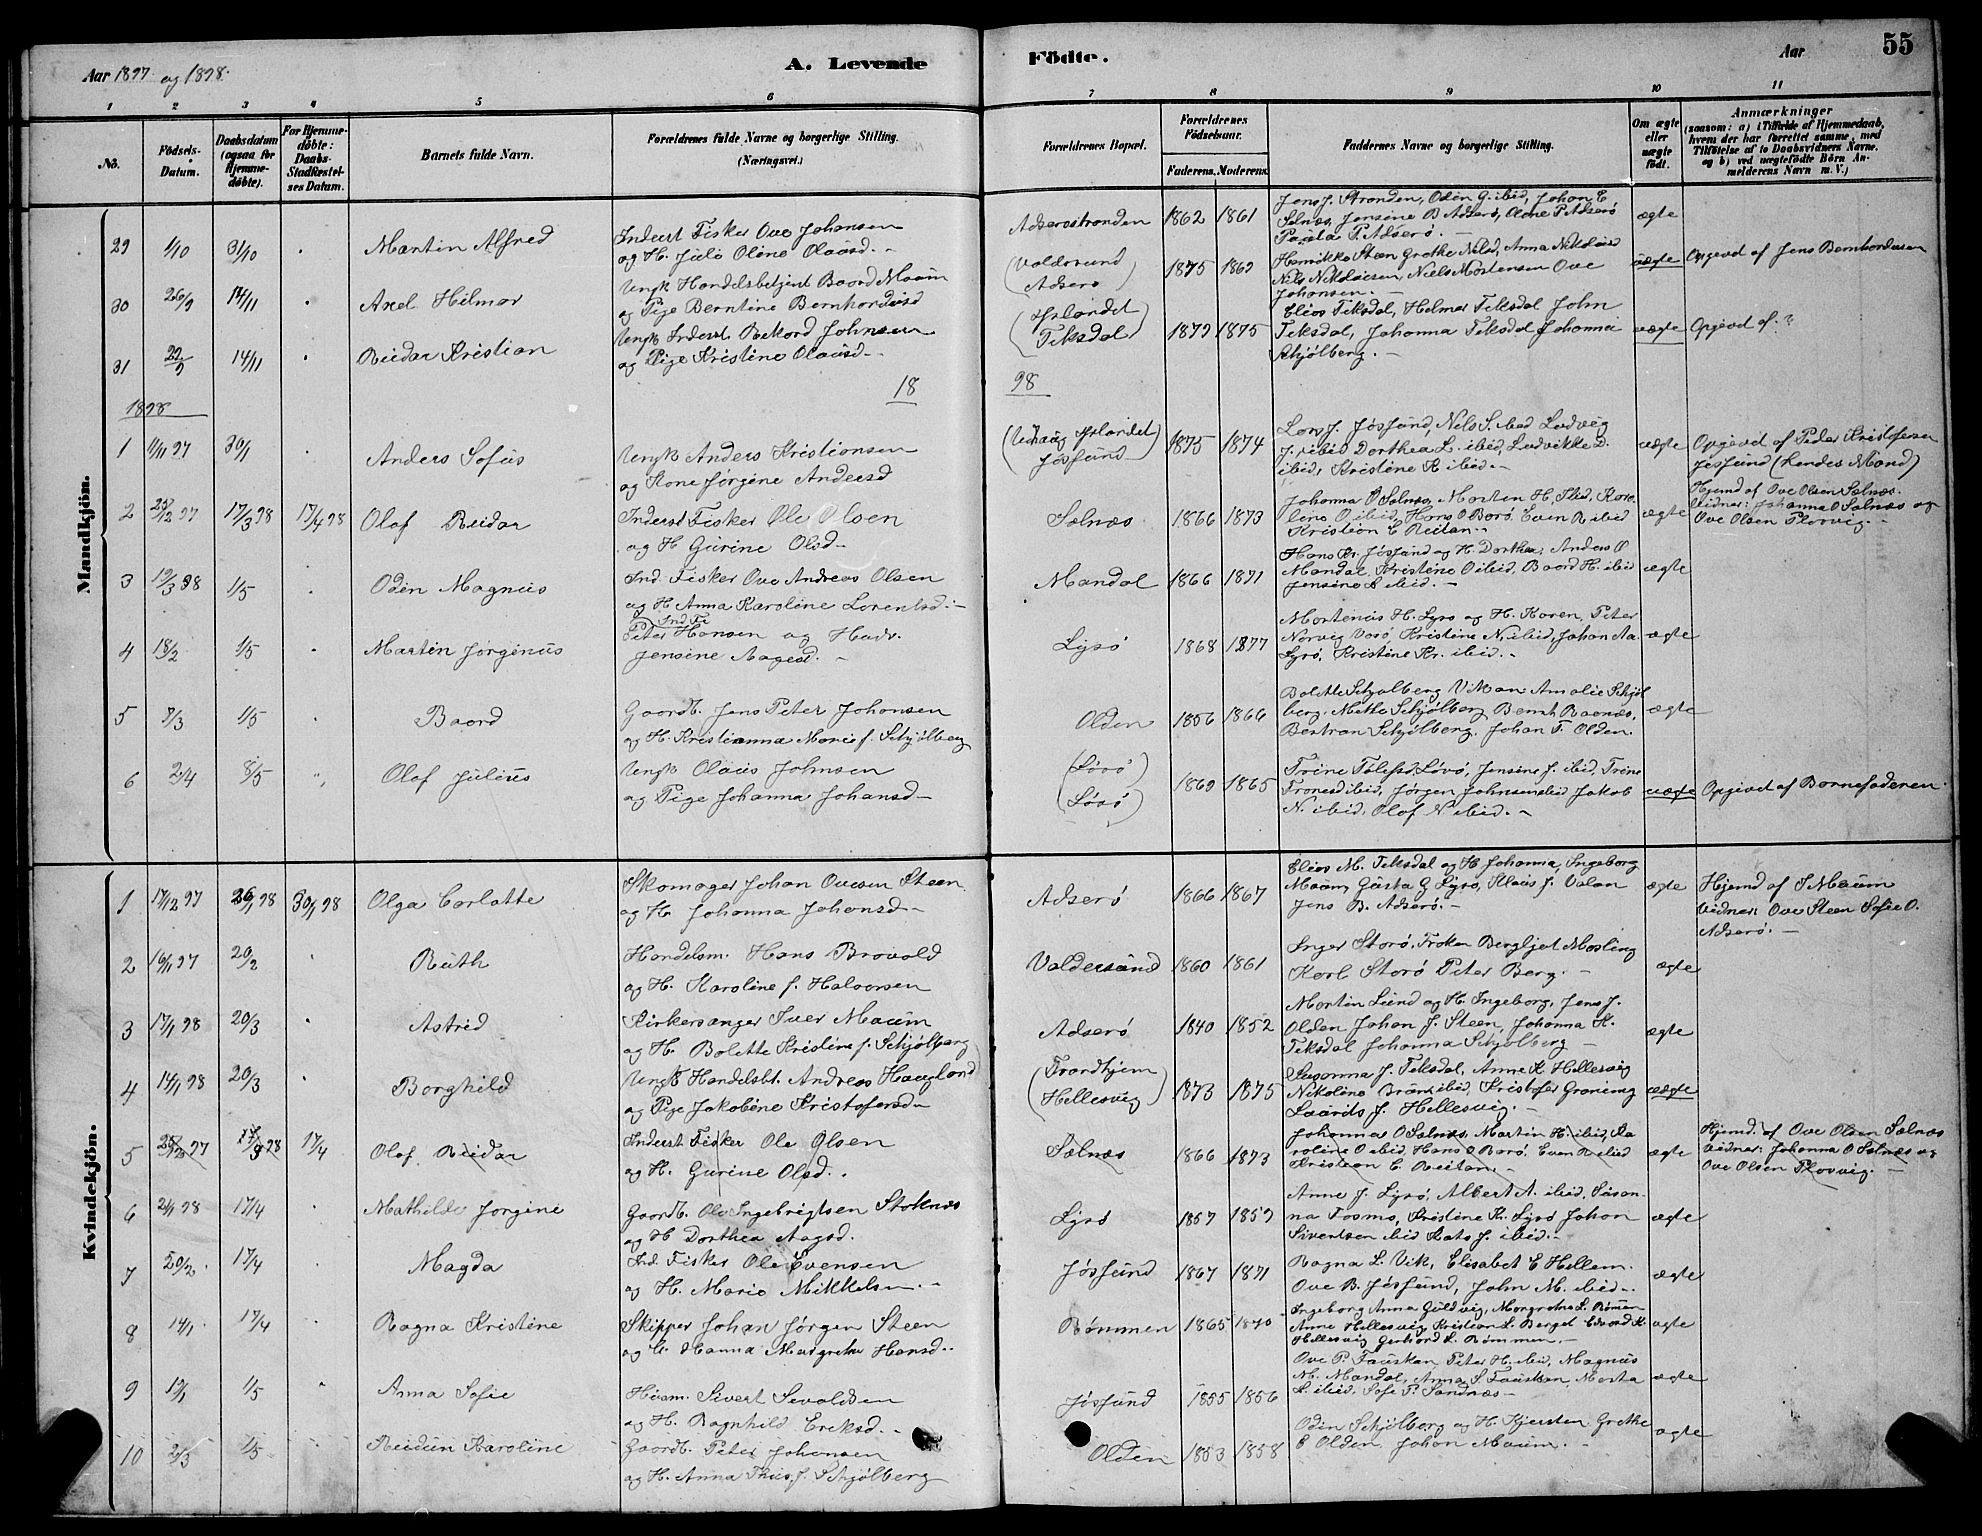 Aar 1897 og 1898.
A. Levende Födte.
Aar
55
1 2 3 4 5 6 7 8 9 10 11
No.
Födsels-Datum.
Daabsdatum (ogsaa for Hjemmedöbte).
For Hjemmedöbte: Daabs-Stadfæstelses Datum.
Barnets fulde Navn.
Forældrenes fulde Navne og borgerlige Stilling.
(Næringsvei.)
Forældrenes Bopæl.
Forældrenes Födselsaar.
Faderens. Moderens.
Faddernes Navne og borgerlige Stilling.
Om ægte eller uægte födt.
Anmærkninger
(saasom: a) i Tilfælde af Hjemmedaab, hvem der har forrettet samme, med Tilföielse af to Daabsvidners Navne. og b) ved uægtefödte Börn Anmelderens Navn m. V.)
Mandkjön.
29 1/10 31/10 " Martin Alfred
Inderst Fisker Ove Johansen
og H. Julie Oline Olausd.-
Adserøstranden 1862 1861
Jens J. Stranden, Odin G. ibid, Johan E
Selnæs, Jensine B Adserø, Oline P. Adserø
Paula P. Adserø.-
ægte
30 26/9 14/11 " Axel Hilmar
Ungk Handelsbetjent Baard Maum
og Pige Berntine Bernhardsd
(Valdersund
Adserø) 1875 1869
Henrikke Steen Grethe Nilsd, Anna Nikolaisd
Nils Nikolaisen, Niels Mortensen Ove
Johansen.-
uægte
Opgivet af Jens Bernhardsen
31 29/9 14/11 " Reidar Kristian
Ungk Inderst Rikard Johnsen
og Pige Kristine Olausd.-
(Hslandet
Teksdal) 1879 1875
Elias Teksdal, Helmer Teksdal John
Teksdal, Johanna Teksdal Johanna
Skjølberg.-
uægte
Opgivet af ?
18
98
1898
1 11/11 97 30/1 " Anders Sofus
Ungk Anders Kristiansen
og Kone Jørgine Andersd
Jøsfund 1875 1874
Lars J. Jøsfund, Nels S. ibid Ludvig
J. ibid Dorthea L. ibid, Ludvikke D.
ibid, Kristine K. ibid.-
uægte
Opgivet af Peder Kristofersen
Jøsfund (hendes Mand)
2 25/12 97 17/3 98 17/4 98 Olaf Reidar
Inderst Fisker Ole Olsen
og H Gurine Olsd.-
Selnæs 1866 1873
Johanna O Selnæs, Morten H. ibid, Karo-
line O ibid, Hans O Borø, Even R ibid
Kristian E Reitan.-
ægte
Hjemd af Ove Olsen Selnæs.
Vidner: Johanna O Selnæs og
Ove Olsen Plovvig.-
3 19/3 98 1/5 " Odin Magnus
Ind. Fisker Ove Andreas Olsen
og H. Anna Karoline Lorentsd.-
Mandal 1866 1871
Hans Kr. Jøsfund og H. Dorthea, Anders O
Mandal, Kristine O ibid, Baard H. ibid
Jensine A ibid.-
ægte
4 18/2 1/5 " Martin Jørginus
Ind Fi
Peter Hansen og Hustr.
Jensine Aagesd.-
Lysø 1868 1877
Mortenus H. Lysø og H. Karen, Peter
Norvig Vasø, Kristine N. ibid, Johan Aa.
Lysø, Kristine Kr. ibid.-
ægte
5 9/3 1/5 " Baard
Gaardb. Jens Peter Johansen
og H. Kristianna Marie f. Schjølberg
Olden 1856 1866
Bolette Schjølberg Vikan. Amalie Schjøl-
berg, Mette Schjølberg, Bernh. Raanæs,
Bertran Schjølberg. Johan F. Olden.
ægte
6 2/4 8/5 " Olaf Julius
Ungk Olaus Johnsen
og Pige Johanna Johansd.-
(Løvø
Løvø) 1869 1865
Trine Tolefsd Løvø, Jensine J. ibid, Trine
Tronesd ibid, Jørgen Johnsen ibid Jakob
N. ibid, Olaf N. ibid.-
uægte
Opgivet af Barnefaderen.
Kvindekjön.
1 17/12 97 26/1 98 30/1 98 Olga Carlotte
Skomager Johan Ovesen Steen
og H. Johanna Johansd.-
Adserø 1866 1867
Elias M. Teksdal og H. Johanna, Ingeborg
Maum, Gusta G Lysø, Klaus J. Valan
Jens B. Adserø.-
ægte
Hjemd af I Maum
Vidner: Ove Steen Sofie O.
Adserø.-
2 16/11 97 20/2 " Ruth
Handelsm. Hans Brovold
og H. Karoline f. Halvorsen
Valdersund 1860 1861
Inger Storø, Frøken Bergljot Møsling
Karl Storø Peter Berg.-
ægte
3 17/1 98 20/3 " Astrid
Kirkesanger Iver Maum
og H. Bolette Kristine f. Schjølberg
Adserø 1840 1852
Martin Lund og H. Ingeborg, Jens J.
Olden, Johan J. Steen, Johanna K.
Teksdal Johanna Schjølberg-
ægte
4 14/1 98 20/3 " Borghild
Ungk Handelsbt. Andreas Haugland
og Pige Jakobine Kristofersd.-
(Trondhjem
Hellesvig) 1873 1875
Susanna J. Teksdal, Anne K Hellesvig
Nikoline Bruns ibid, Kristofer Grøning
Laurits J. Hellesvig.-
uægte
5 25/12 97 17/3 98 17/4 Olaf Reidar
Inderst Fisker Ole Olsen
og H. Gurine Olsd..
Selnæs 1866 1873
Johanna O Selnæs, Martin H. ibid, Ka
roline O ibid, Hans O Borø, Even R ibid
Kristian E Reitan.-
ægte
Hjemd. af Ove Olsen Selnæs
Vidner: Johanna O Selnæs og
Ove Olsen Plovvig.-
6 2/1 98 17/4 " Mathilde Jørgine
Gaardb. Ole Ingebrigtsen Stoknæs
og H Dorthea Aagsd.
Lysø 1857 1859
Anne J. Lysø, Albert A. ibid, Susan-
na Fosmo, Kristine Kr. Lysø Johan
Sivertsen ibid Lats J. ibid.-
ægte
7 20/2 17/4 " Magda
Ind. Fisker Ole Evensen
og H. Marie Mikkelsen.-
Jøsfund 1867 1871
Ragna L. Vik, Elisabet E Hellem.
Ove B. Jøsfund, John M. ibid.-
ægte
8 14/1 17/4 " Ragna Kristine
Skipper Johan Jørgen Steen
og H. Hanna Margrete Hansd..
Rømmen 1865 1870
Ingeborg Anna Guldvig, Margrethe L. Rømmen
Anne Hellesvig Kristian L. Berget Edvard K.
Hellesvig Gerhard L. Rømmen.-
ægte
9 19/1 1/5 " Anna Sofie
Husm. Sivert Sevaldsen
og H. Ragnhild Eriksd.-
Jøsfund 1855 1856
Ove P. Fauskan, Peter H. ibid, Magnus
M. Mandal, Anna S. Fauskan, Marta
L. ibid. Sofie P. Sandnæs-
ægte
10 2/3 1/5 " Reidun Karoline
Gaardb. Peter Johansen
og H. Anna Thus. f. Schjølberg
Olden 1853 1858
Odin Schjølberg og H. Kjersten, Grethe
E Olden, Johan Maum.-
ægte